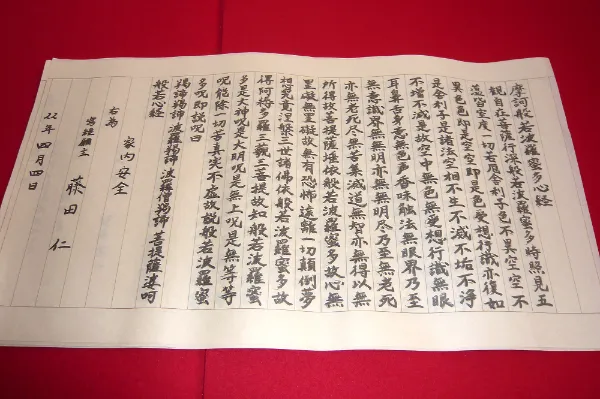 摩訶般若波羅蜜多心経
観自在菩薩行深般若波羅蜜多時照見五
蘊皆空度一切苦厄舎利子色不異空空不
異色色即是空空即是色受想行識亦復如
是舎利子是諸法空相不生不滅不垢不浄
不増不減是故空中無色無受想行識無眼
耳鼻舌身意無色声香味触法無眼界乃至
無意識界無無明亦無無明尽乃至無老死
亦無老死尽無苦集滅道無智亦無得以無
所得故菩提薩埵依般若波羅蜜多故心無
罣礙無罣礙故無有恐怖遠離一切顛倒夢
想究竟涅槃三世諸佛依般若波羅蜜多故
得阿耨多羅三藐三菩提故知般若波羅蜜
多是大神呪是大明呪是無上呪是無等等
呪能除一切苦真実不虚故説般若波羅蜜
多呪即説呪曰
羯諦羯諦 波羅羯諦 波羅僧羯諦 菩提薩婆呵
般若心経
右為 家内安全
写経願主 藤田 仁
22年四月四日